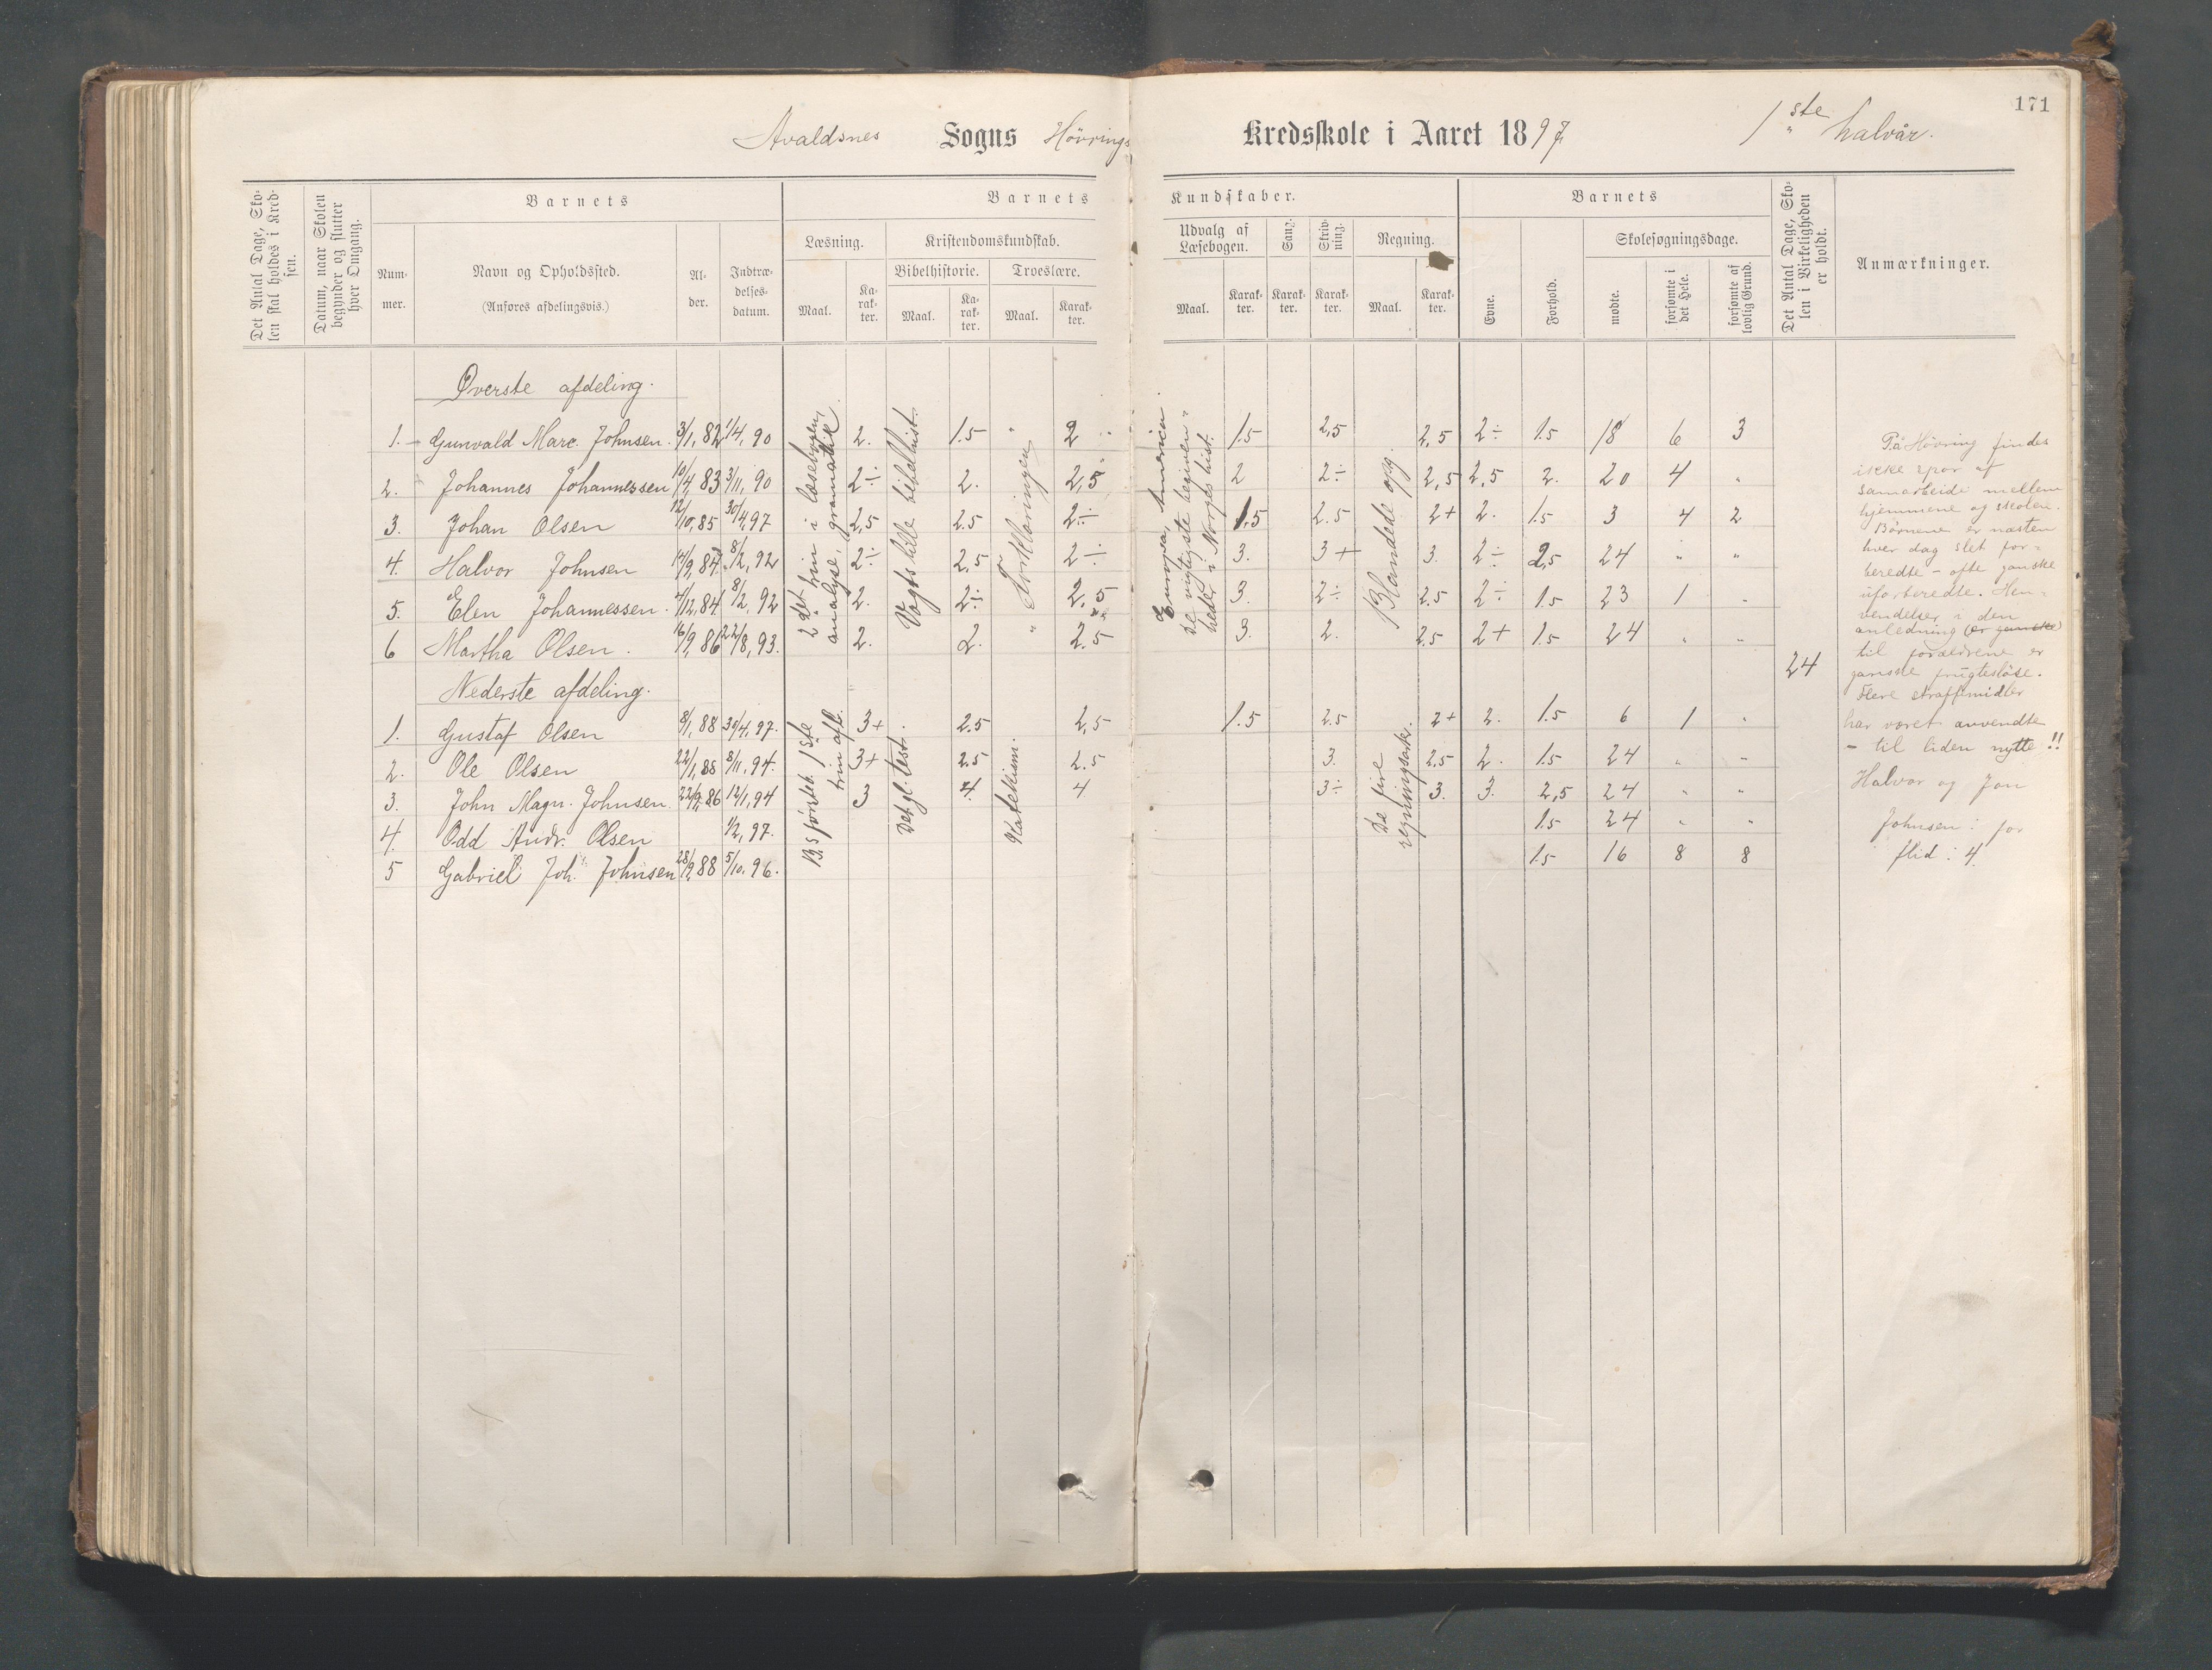 171
Avaldsnes Sogns Hövrings Kredsskole i Aaret 1897 1ste halvår.
Det Antal Dage, Skolen skal holdes i Kredsen.
Datum, naar Skolen begynder og slutter hver Omgang.
Barnets
Nummer.
Navn og Opholdssted.
(Anføres afdelingsvis.)
Alder.
Indtrædelsesdatum.
Barnets Kundskaber.
Læsning.
Maal. Karakter.
Kristendomskundskab.
Bibelhistorie. Troeslære.
Maal. Karakter. Maal. Karakter.
Udvalg af Læsebogen.
Maal. Karakter.
Sang. Karakter.
Skrivning. Karakter.
Regning.
Maal. Karakter.
Barnets
Evne. Forhold.
Skolesøgningsdage.
mødte. forsømte i det Hele. forsømte af lovlig Grund.
Det Antal Dage, Skolen i Virkeligheden er holdt.
Anmærkninger.
Øverste afdeling.
1. Gunvald Marc. Johnsen. 3/1, 82 1/4, 90 2. 1.5 2 1.5 2,5 2,5 2÷ 1.5 18 6 3
2. Johannes Johannessen 10/4, 83 3/11, 90 2÷ 2. 2,5 2 2÷ 2,5 2,5 2. 20 4 "
3. Johan Olsen 12/10, 85 30/4, 97 2,5 2.5 2÷ 1.5 2.5 2+ 2. 1.5 3 4 2
4. Halvor Johnsen 14/9, 84 8/2, 92 2÷ 2,5 2÷ 3. 3+ 3. 2÷ 2,5 24 " "
5. Elen Johannessen. 4/12, 84 8/2, 92 2. 2÷ 2,5 3. 2÷ 2.5 2÷ 1.5 23 1 "
6 Martha Olsen. 16/9, 86 22/8, 93. 2. 2. 2.5 3. 2. 2.5 2+ 1.5 24 " "
2det trin i læsebogen, analyse, gramatik.
Vogts lille bibelhist.
" Forklaringen "
Europa, Amerika.
De vigtigste begivenheder i Norges hist.
Blandede opg.
24
Nederste afdeling.
1. Gustaf Olsen 8/1, 88 30/4, 97. 3+ 2.5 2,5 1.5 2.5 2+ 2. 1.5 6 1 "
2. Ole Olsen 22/1, 88 8/11, 94. 3+ 2.5 2.5 3. 2.5 2. 1.5 24 " "
3. John Magn. Johnsen. 22/9, 86 12/1, 94 3 4 4 3÷ 3. 3. 2,5 24 " "
4. Odd Andr. Olsen 1/2, 97. 1.5 24 " "
5 Gabriel Joh. Johnsen 28/9, 88 5/10, 96. 1.5 16 8 8
1ste trin afl.
Det gl. test.
Katekism.
De fire regningsarter.
På Hövring findes
ikke spor af
samarbeide mellem
hjemmene og skolen.
Börnene er næsten
hver dag slet for-
beredte – ofte ganske
uforberedte. Hen-
vendelser i den
anledning (er ganske)
til forældrene er
ganske frugtesløse.
Flere straffemidler
har været anvendte
– til liden nytte!!
Halvor og Jon
Johnsen: for
flid: 4.